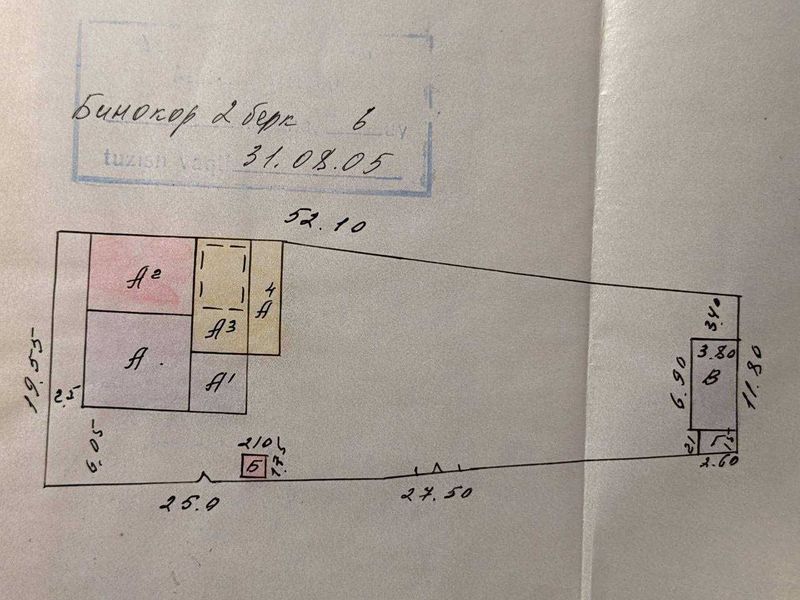 Бинокор 2 берк 6
tuzish vaqti 31.08.05
52.10
19.55
А2
А3
4
А
А
А1
2,5
6,05
210
Б
1.75
25.0
27.50
3.40
3.80
6.90
В
11.80
21
Г
2.60